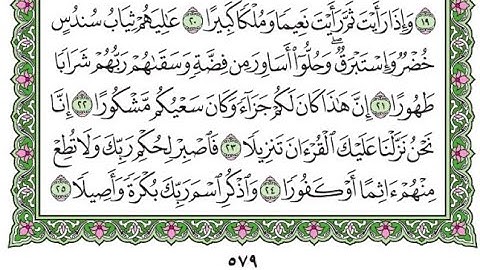 ١٩ وَإِذَا رَأَيْتَ ثَمَّ رَأَيْتَ نَعِيمًا وَمُلْكًا كَبِيرًا ٢٠ عَٰلِيَهُمْ ثِيَابُ سُندُسٍ
خُضْرٌ وَإِسْتَبْرَقٌ ۖ وَحُلُّوٓا۟ أَسَاوِرَ مِن فِضَّةٍ وَسَقَىٰهُمْ رَبُّهُمْ شَرَابًا
طَهُورًا ٢١ إِنَّ هَٰذَا كَانَ لَكُمْ جَزَآءً وَكَانَ سَعْيُكُم مَّشْكُورًا ٢٢ إِنَّا
نَحْنُ نَزَّلْنَا عَلَيْكَ ٱلْقُرْءَانَ تَنزِيلًا ٢٣ فَٱصْبِرْ لِحُكْمِ رَبِّكَ وَلَا تُطِعْ
مِنْهُمْ ءَاثِمًا أَوْ كَفُورًا ٢٤ وَٱذْكُرِ ٱسْمَ رَبِّكَ بُكْرَةً وَأَصِيلًا ٢٥
٥٧٩